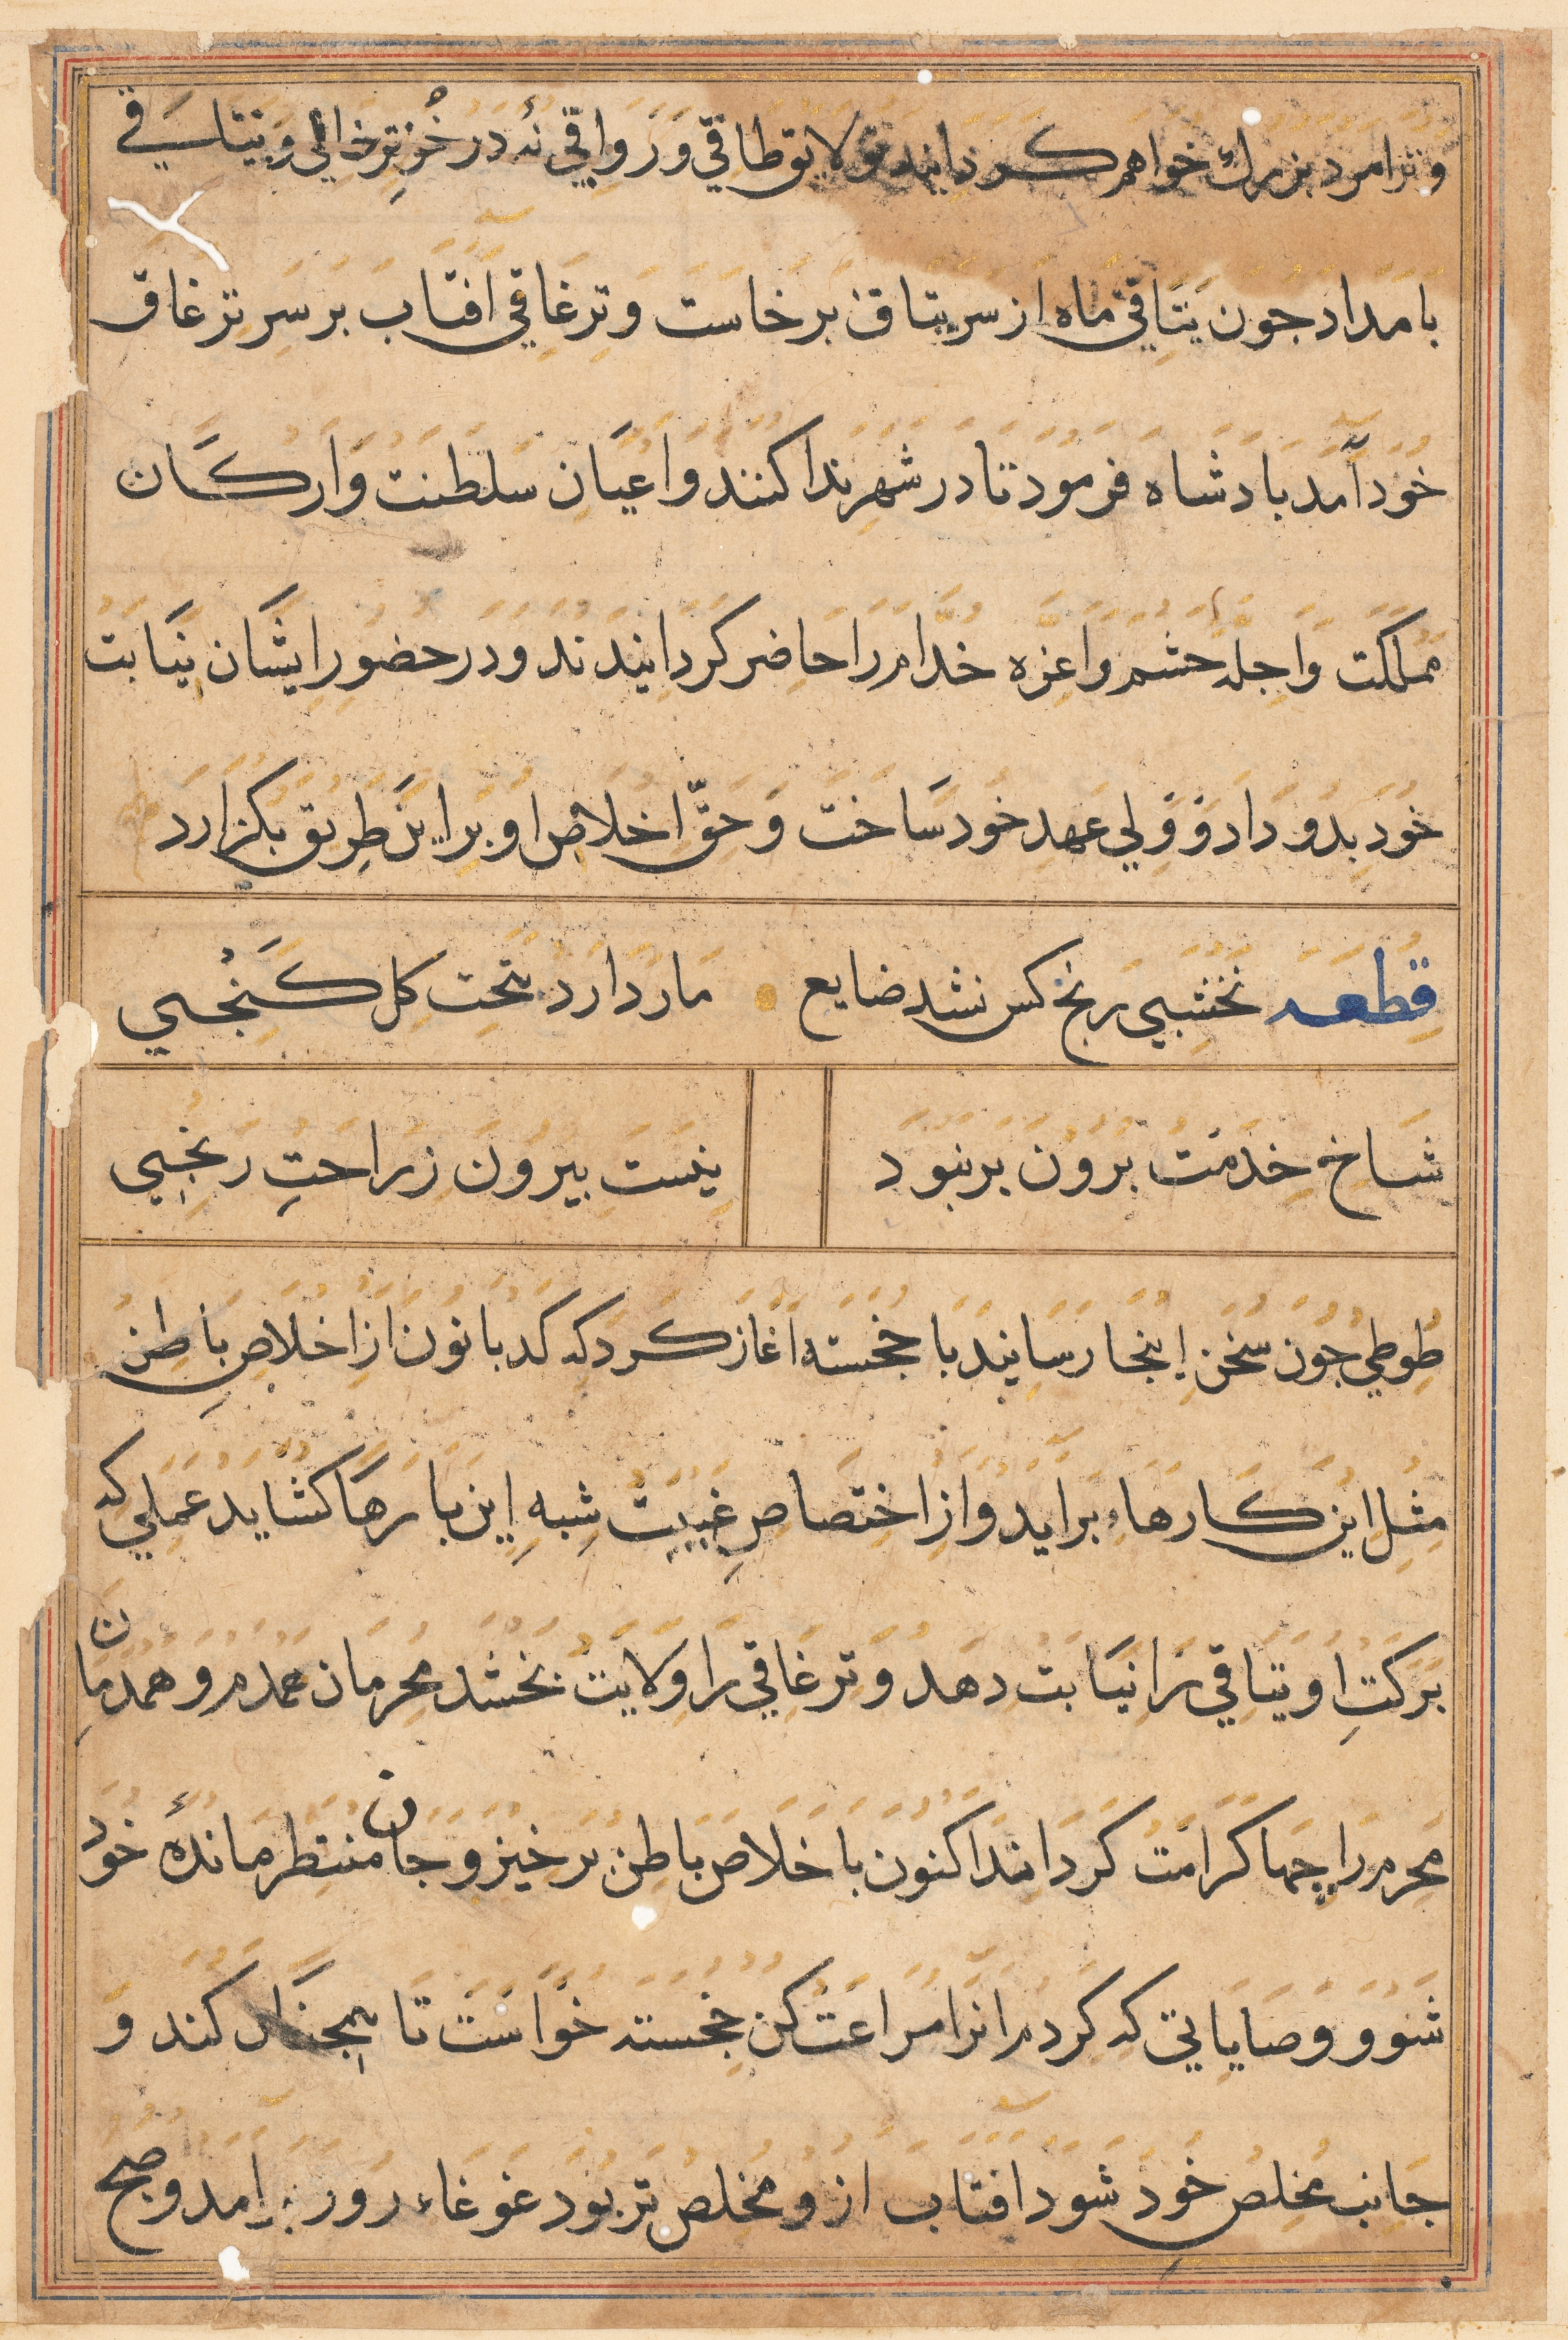 و ترا مرد بزرك خواهم كردانيد تو لايق طاقي و رواقي نهٔ در خُزِ ترخاني و يتاقي
بامداد جون يتاقي ماه از سر يتاق برخاست و ترغاقي افتاب بر سر ترغاق
خود آمد بادشاه فرمود تا در شهر ندا كنند و اعيان سلطنت و اركان
مملكت و اجلّه حشم و اعزه خدّام را حاضر كردانيدند و در حضور ايشان نيابت
خود بدو داد و ولي عهد خود ساخت و حقّ اخلاص او بر اين طريق بكزارد
قطعه نخشبي رنج كس نشد ضايع مار دارد بتحت كل كنجي
شاخ خدمت برون بر نبود
نيست بيرون ز راحت رنجي
طوطي جون سخن اينجا رسانيد با خجسته آغاز كرد كه كدبانو ن از اخلاص باطن
مثل اين كارهاء برايد و از اختصاص غيبت شبه اين بارها كشايد عملي كه
بركت او يتاقي را نيابت دهد و ترغاقي را ولايت بخشد محرمان همدم و همدمان
محرم را چها كرامت كرداند اكنون با خلاص باطن برخيز و جان منتظر ماندهٔ خود
شو و وصايايي كه كردم انرا مراعت كن خجسته خواست تا همجنان كند و
جانب مخلص خود شود افتاب ازو مخلص تر بود غوغاء روز برامد و صبح